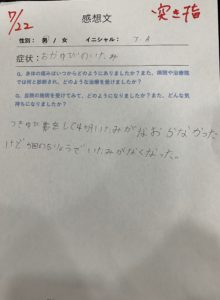 7/22
突き指
感想文
性別： 男 ／ 女　イニシャル： J.A
症状：おやゆびのいたみ
Q. 身体の痛みはいつからどのようにありましたか？また、病院や治療院では何と診断され、どのような治療を受けましたか？
Q. 当院の施術を受けてみて、どのようになりましたか？また、どんな気持ちになりましたか？
つきゆび
して4日いたみがなおらなかった
けど1回のちりょうでいたみがなくなった。